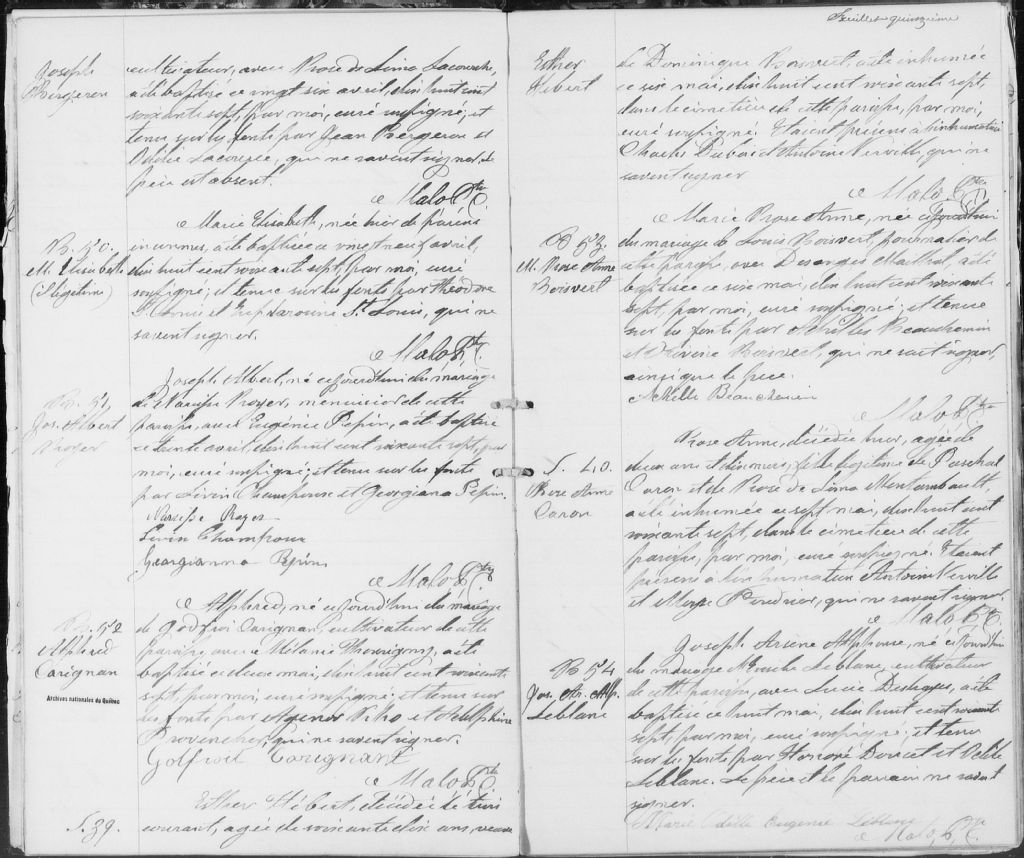 Joseph
Bergeron
cultivateur, avec Rose de Lima Lacourse,
a été baptisé ce vingt six avril, dix huit cent
soixante sept, par moi, curé soussigné; et
tenu sur les fonts par Jean Bergeron et
Lacourse, qui ne savent signer. Le
père est absent.
C Malo Ptre
B. 50.
M. Elisabeth
(illégitime)
Marie Elisabeth, née hier de parens
inconnus, a été baptisée ce vingt neuf avril,
dix huit cent soixante sept, par moi, curé
soussigné; et tenue sur les fonts par Théodore
St. Louis et St. Louis, qui ne
savent signer.
C Malo Ptre
B. 51.
Jos. Albert
Royer
Joseph Albert, né ce jourd'hui du mariage
de Narcisse Royer, menuisier de cette
paroisse, avec Eugénie Pepin, a été baptisé
ce trente avril, dix huit cent soixante sept, par
moi, curé soussigné; et tenu sur les fonts
par Livin Champoux et Georgiana Pepin.
Narcisse Royer
Livin Champoux
Georgianna Pepin
C Malo Ptre
B. 52
Alphred
Carignan
Alphred, né ce jourd'hui du mariage
de Godfroi Carignan, cultivateur de cette
paroisse, avec Mélanie Thouvigny, a été
baptisé ce deux mai, dix huit cent soixante
sept, par moi, curé soussigné; et tenu sur
les fonts par Agenor et Adelphine
Provencher, qui ne savent signer.
Golfroit Carignant
C Malo Ptre
Archives nationales du Québec
S. 39.
Esther Hébert, décédée le trois
courant, agée de soixante dix ans, veuve
Feuillet quinzième
Esther
Hebert
de Dominique Boisvert, a été inhumée
ce six mai, dix huit cent soixante sept,
dans le cimetière de cette paroisse, par moi,
curé soussigné. Etaient présens à l'inhumation
Charles Dubois et Antoine Verville, qui ne
savent signer
C Malo Ptre
B 53.
M. Rose Anne
Boisvert
Marie Rose Anne, née ce jourd'hui
du mariage de Louis Boisvert, journalier de
cette paroisse, avec Desanges, a été
baptisée ce six mai, dix huit cent soixante
sept, par moi, curé soussigné; et tenue
sur les fonts par Achilles Beauchemin
et Boisvert, qui ne sait signer,
ainsi que le père.
Achille Beauchemin
C Malo Ptre
S. 40.
Rose Anne
Caron
Rose Anne, décédée hier, agée de
deux ans et dix mois, fille légitime de Paschal
Caron et de Rose de Lima Montambault,
a été inhumée ce sept mai, dix huit cent
soixante sept, dans le cimetière de cette
paroisse, par moi, curé soussigné. Etaient
présens à l'inhumation Antoine Verville
et Moyse Poudrier, qui ne savent signer.
C Malo Ptre
B 54
Jos. Ar. Alp.
Leblanc
Joseph Arsène Alphonse, né ce jourd'hui
du mariage Leblanc, cultivateur
de cette paroisse, avec Lucie, a été
baptisé ce huit mai, dix huit cent soixante
sept, par moi, curé soussigné; et tenu
sur les fonts par Honoré Doucet et Odile
Leblanc. Le père et le parrain ne savent
signer.
Marie Odille Eugenie Leblanc
C Malo, Ptre